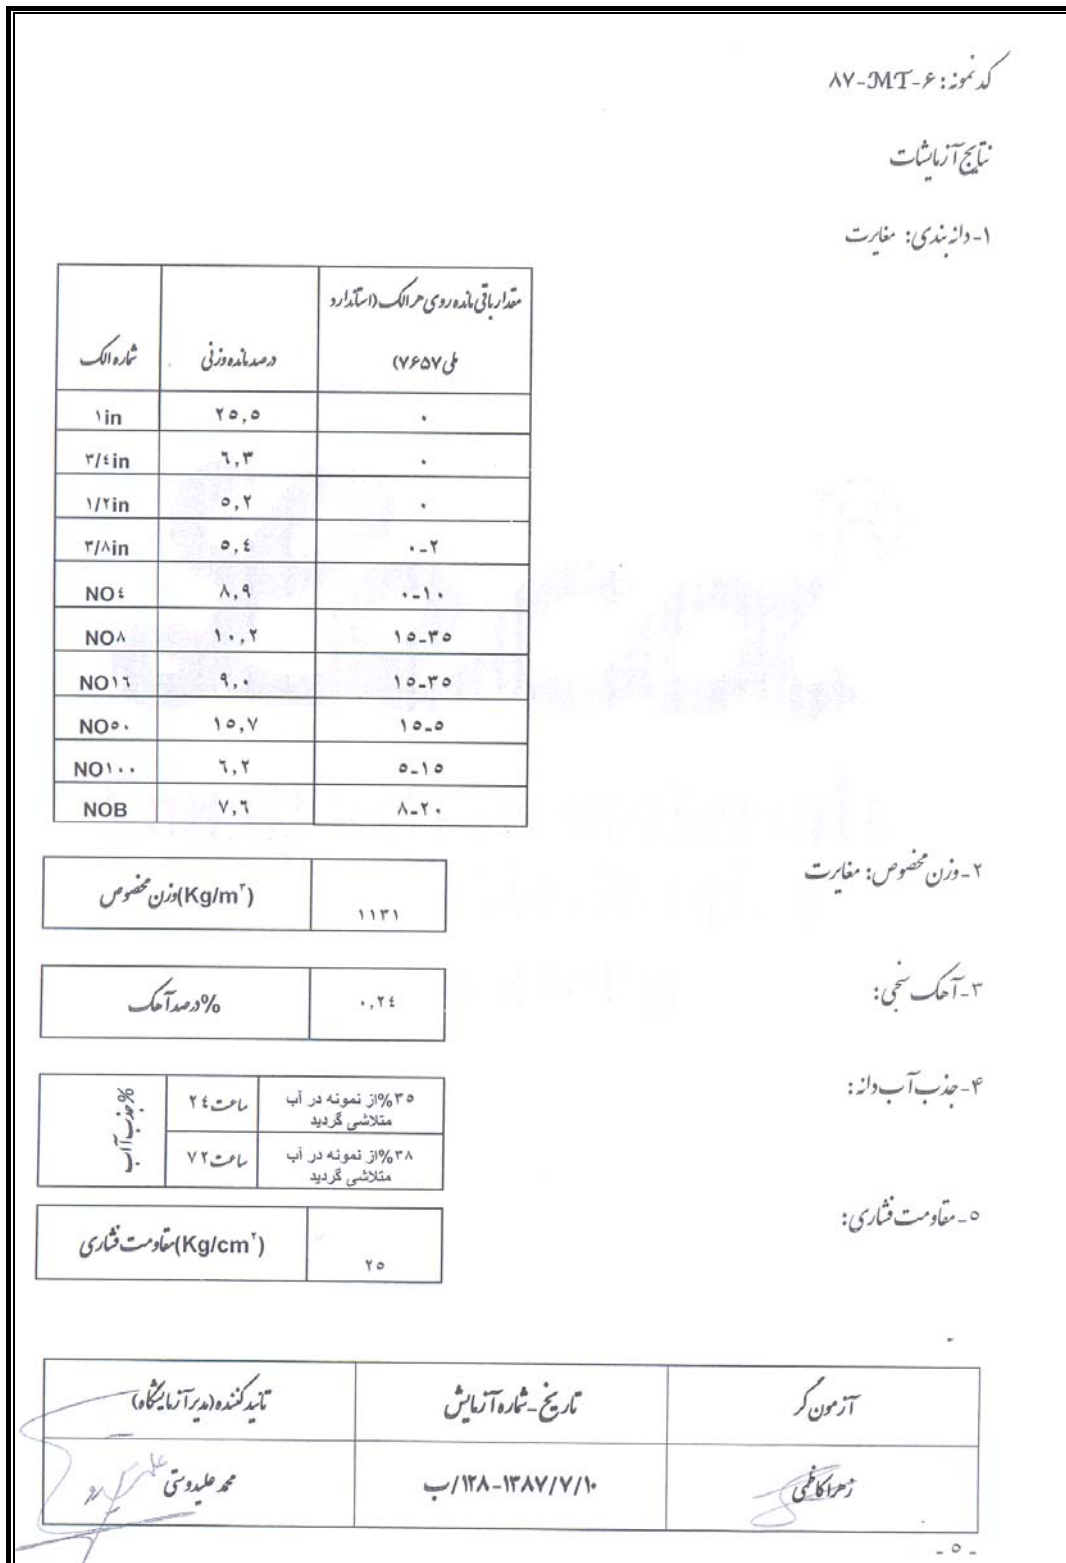 کد نمونه: ۸۷-MT-۶
نتایج آزمایشات
۱- دانه بندی: مغایرت
شماره الک	درصد مانده وزنی	مقدار باقی مانده روی هر الک (استاندارد ملی ۷۶۵۷)
۱in	۲۵,۵	۰
۳/۴in	۶,۳	۰
۱/۲in	۵,۲	۰
۳/۸in	۵,٤	۰-۲
NO٤	۸,۹	۰-۱۰
NO۸	۱۰,۲	۱۵-۳۵
NO۱٦	۹,۰	۱۵-۳۵
NO۵۰	۱۵,۷	۱۵-۵
NO۱۰۰	٦,۲	۵-۱۵
NOB	۷,٦	۸-۲۰
۲- وزن مخصوص: مغایرت
وزن مخصوص(Kg/m۳)	۱۱۳۱
۳- آهک سنجی:
%درصد آهک	۰,۲٤
۴- جذب آب دانه:
%جذب آب
ساعت ۲٤	۳۵%از نمونه در آب
متلاشی گردید
ساعت ۷۲	۳۸%از نمونه در آب
متلاشی گردید
۵- مقاومت فشاری:
مقاومت فشاری(Kg/cm۲)	۲۵
آزمون گر	تاریخ-شماره آزمایش	تائید کننده(مدیر آزمایشگاه)
زهرا کاظمی	۱۳۸۷/۷/۱۰-۱۲۸/ب	محمد علیدوستی
- ۵ -